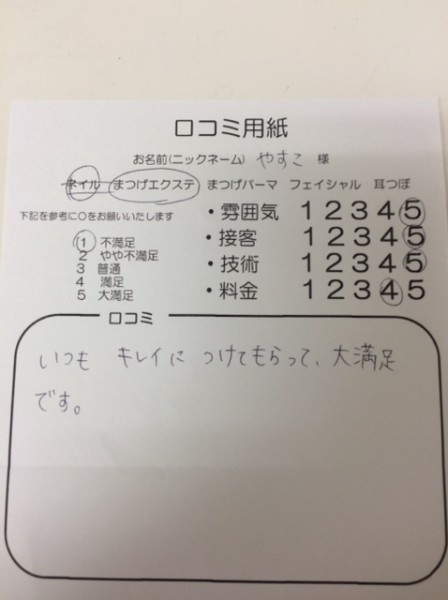 口コミ用紙
お名前(ニックネーム) やすこ 様
ネイル まつげエクステ まつげパーマ フェイシャル 耳つぼ
下記を参考に○をお願いいたします
1 不満足
2 やや不満足
3 普通
4 満足
5 大満足
・雰囲気 1 2 3 4 5
・接客 1 2 3 4 5
・技術 1 2 3 4 5
・料金 1 2 3 4 5
口コミ
いつも キレイに つけてもらって、大満足
です。